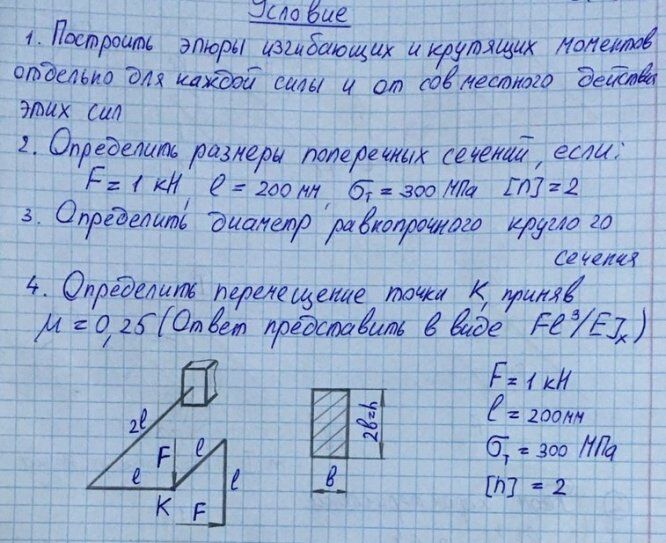 Условие
1. Построить эпюры изгибающих и крутящих моментов
отдельно для каждой силы и от совместного действия
этих сил
2. Определить размеры поперечных сечений, если:
F = 1 кН, l = 200 мм, σт = 300 МПа [n] = 2
3. Определить диаметр равнопрочного круглого
сечения
4. Определить перемещение точки К, приняв
μ = 0,25 (Ответ представить в виде Fl³/EJx)
2l
F
l
l
l
K
F
2b=h
b
F = 1 кН
l = 200мм
σт = 300 МПа
[n] = 2